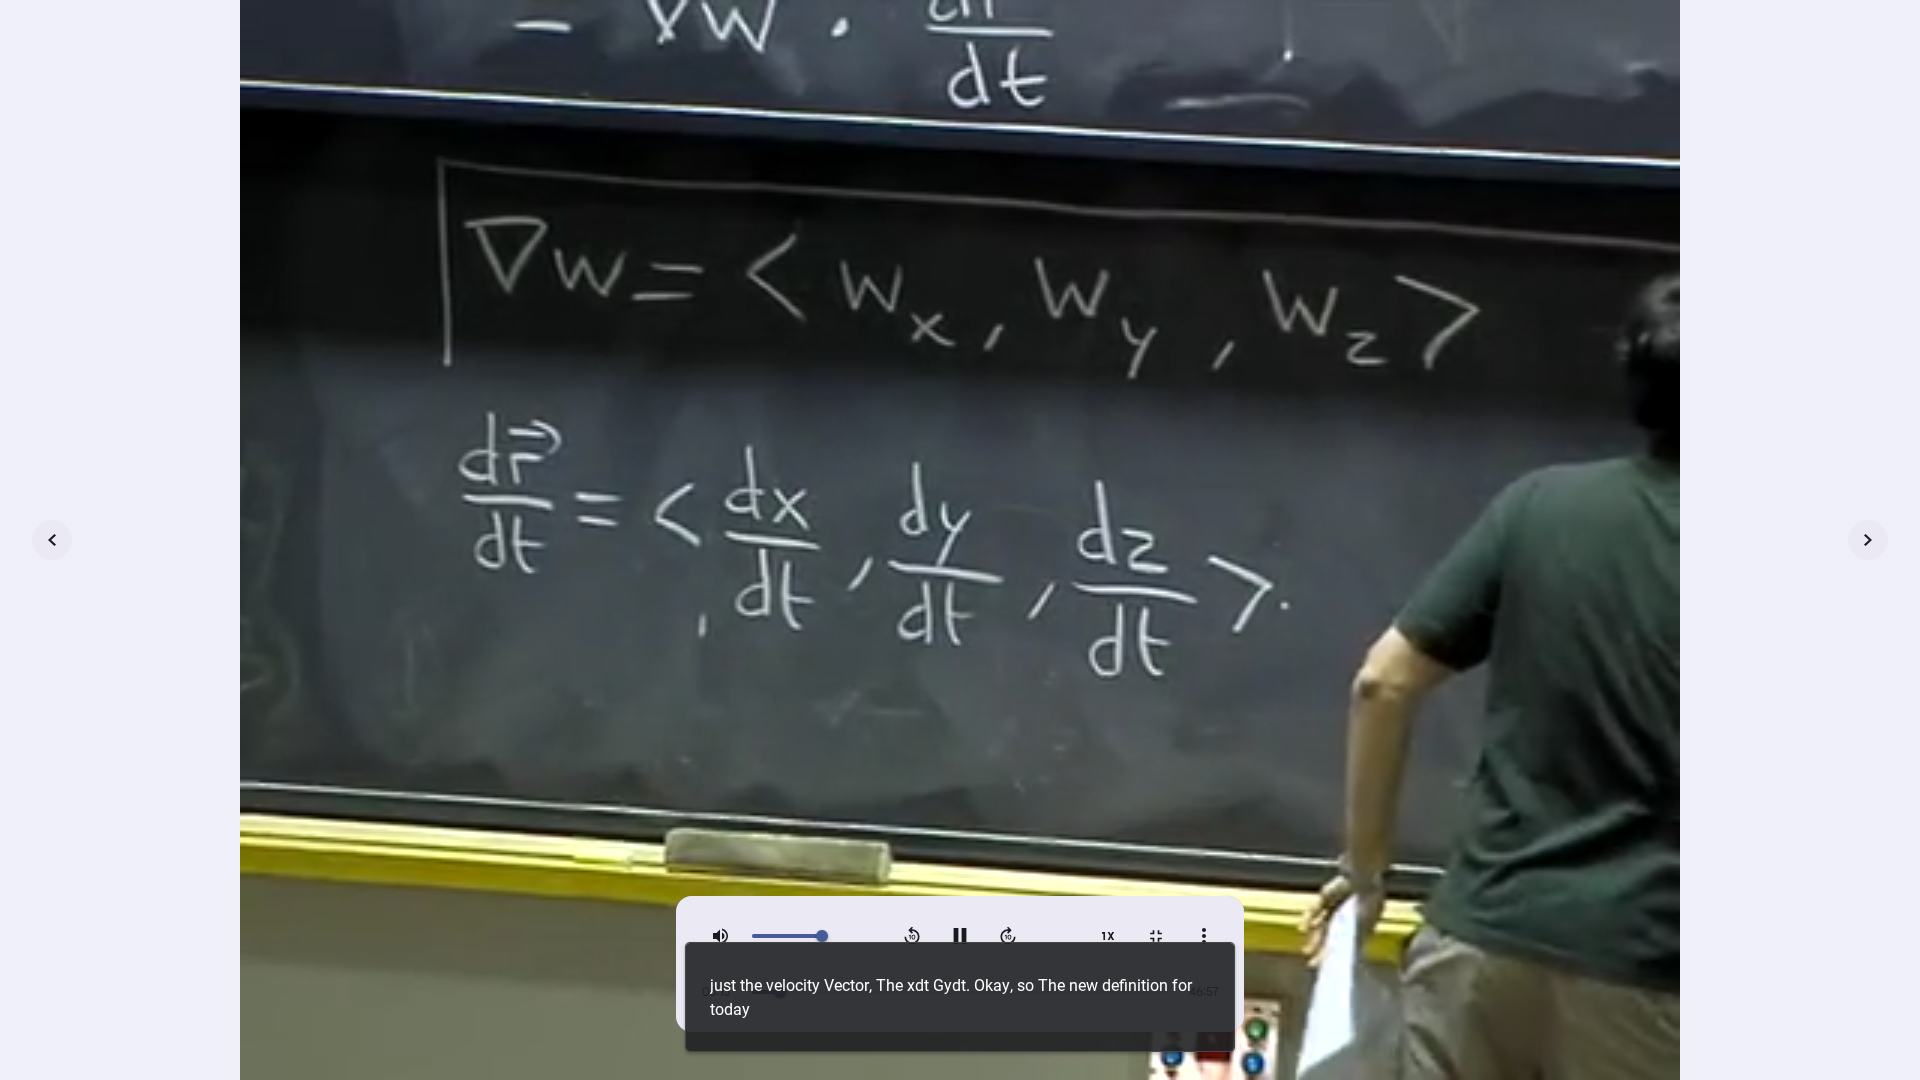 = ∇w · dr/dt
∇w = < w_x , w_y , w_z >
dr⃗/dt = < dx/dt , dy/dt , dz/dt > .
10 10 1X
just the velocity Vector, The xdt Gydt. Okay, so The new definition for
today
46:57